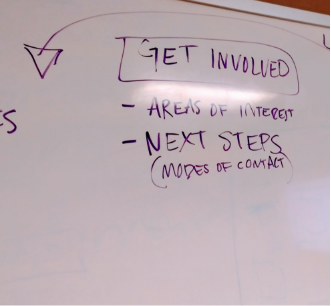 GET INVOLVED
- AREAS OF INTEREST
ES
- NEXT STEPS
(MODES OF CONTACT)